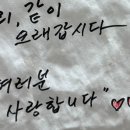 리, 같이
오래갑시다
여러분
사랑합니다"